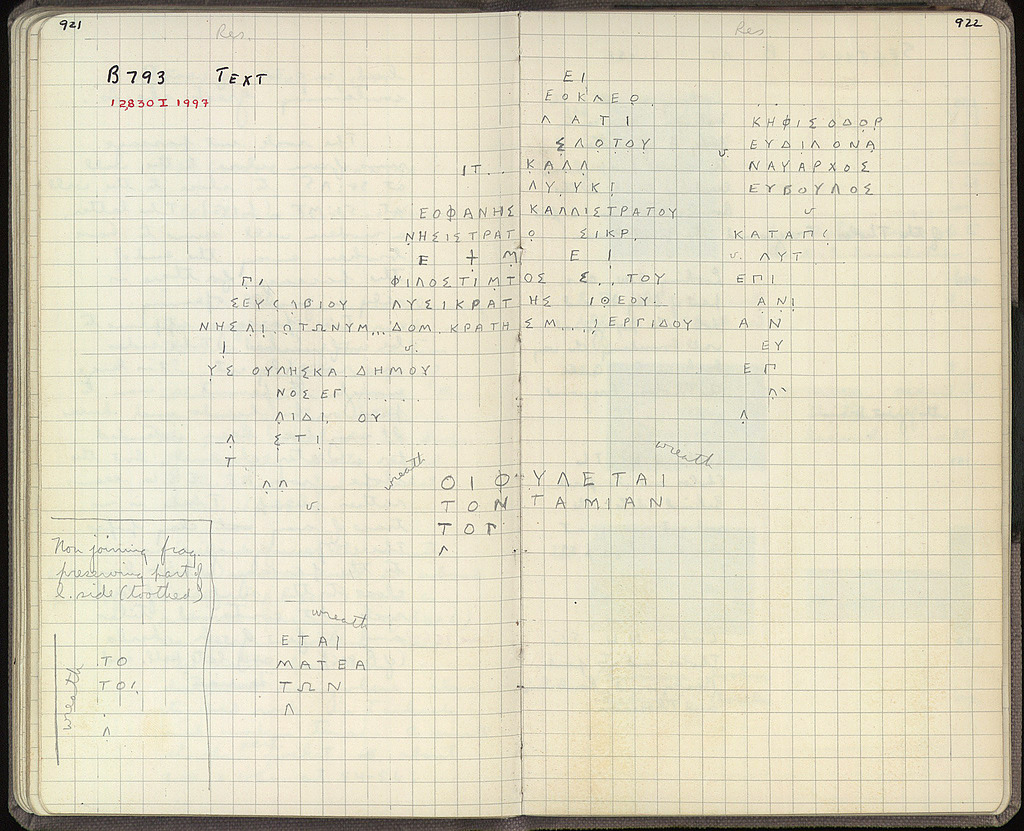 921
Res.
B 793 TEXT
12,830 I 1997
ΙΤ..
ΕΟΦΑΝΗΣ
ΝΗΣΙΣΤΡΑΤ
Ε
ΦΙΛΟΣΤΙΜΤ
ΛΥΣΙΚΡΑΤ
ΝΥΜ...ΔΟΜ.ΚΡΑΤΗ
Ι v.
ΥΣ ΟΥΛΗΣΚΑ.ΔΗΜΟΥ
ΝΟΣΕΓ.....
ΛΙΔΙ. ΟΥ
Λ ΣΤΙ
Τ
wreath
ΛΛ
v.
ΟΙΦ
ΤΟΝ
ΤΟΓ
Λ
Non joining frag.
preserving part of
l. side (toothed)
wreath
ΤΟ
ΤΟΙ
Λ
wreath
ΕΤΑΙ
ΜΑΤΕΑ
ΤΩΝ
Λ
922
Res
ΕΙ
ΕΟΚΛΕΟ.
ΛΑΤΙ
ΣΛΟΤΟΥ
ΚΑΛΛ
ΛΥ.ΥΚΙ
ΚΑΛΛΙΣΤΡΑΤΟΥ
Ο ΣΙΚΡ.
ΕΙ
ΟΣ Σ..ΤΟΥ
ΗΣ ΙΘΕΟΥ...
ΣΜ....ΙΕΡΓΙΔΟΥ
wreath
ΥΛΕΤΑΙ
ΤΑΜΙΑΝ
ΚΗΦΙΣΟΔΩΡ
v. ΕΥΔΙΛΟΝΑ
ΝΑΥΑΡΧΟΣ
ΕΥΒΟΥΛΟΣ
v
ΚΑΤΑΠ
v. ΛΥΤ
ΕΠΙ
ΑΝΙ
ΑΝ
ΕΥ
ΕΠ
Λ